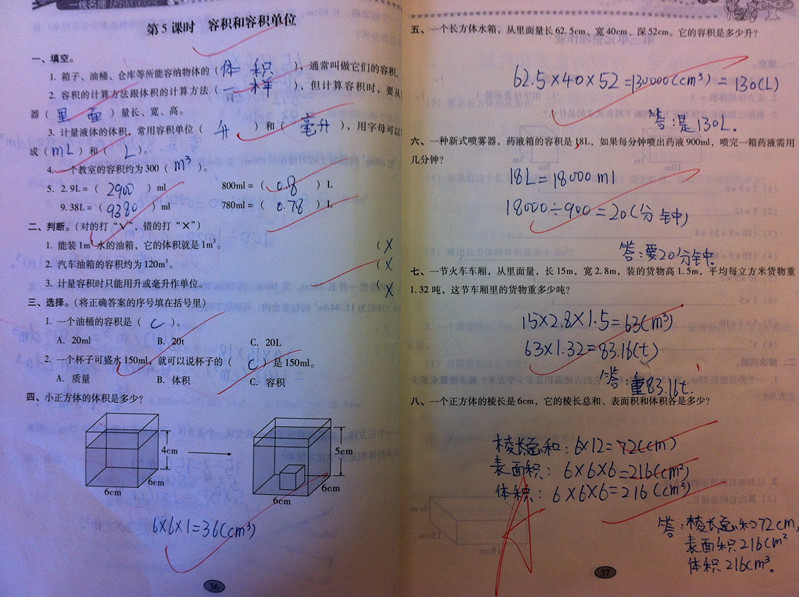 第5课时 容积和容积单位
一、填空。
1. 箱子、油桶、仓库等所能容纳物体的（体积），通常叫做它们的容积。
2. 容积的计算方法跟体积的计算方法（一样），但计算容积时，要从
器（里面）量长、宽、高。
3. 计量液体的体积，常用容积单位（升）和（毫升），用字母可以
成（mL）和（L）。
4. 一个教室的容积约为300（m³）。
5. 2.9L=（2900）ml 800ml=（0.8）L
9.38L=（9380）ml 780ml=（0.78）L
二、判断。（对的打“√”，错的打“×”）
1. 能装1m³水的油箱，它的体积就是1m³。（×
2. 汽车油箱的容积约为120m³。（×
3. 计量容积时只能用升或毫升作单位。（×
三、选择。（将正确答案的序号填在括号里）
1. 一个油桶的容积是（C）。
A. 20ml B. 20t C. 20L
2. 一个杯子可盛水150ml，就可以说杯子的（C）是150ml。
A. 质量 B. 体积 C. 容积
四、小正方体的体积是多少?
4cm 6cm 6cm 5cm 6cm 6cm
6×6×1=36(cm³)
36
五、一个长方体水箱，从里面量长62.5cm、宽40cm、深52cm。它的容积是多少升?
62.5×40×52=130000(cm³)=130(L)
答：是130L.
六、一种新式喷雾器，药液箱的容积是18L，如果每分钟喷出药液900ml，喷完一箱药液需用
几分钟?
18L=18000ml
18000÷900=20(分钟)
答：要20分钟.
七、一节火车车厢，从里面量，长15m，宽2.8m，装的货物高1.5m，平均每立方米货物重
1.32吨，这节车厢里的货物重多少吨?
15×2.8×1.5=63(m³)
63×1.32=83.16(t)
答：重83.16t.
八、一个正方体的棱长是6cm，它的棱长总和、表面积和体积各是多少?
棱长总和：6×12=72(cm)
表面积：6×6×6=216(cm²)
体积：6×6×6=216(cm³)
答：棱长总和72cm,
表面积216cm²
体积216cm³.
37